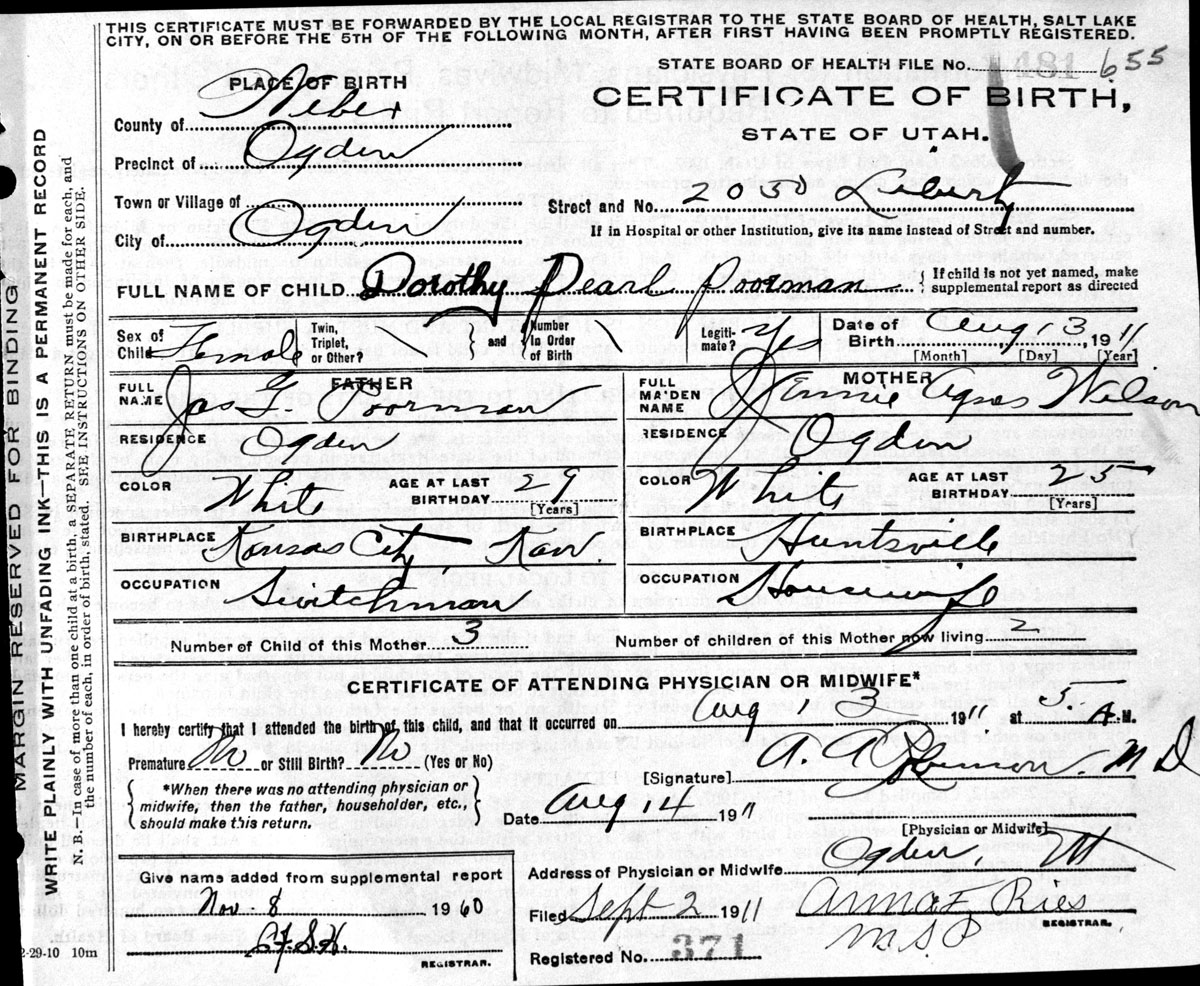 THIS CERTIFICATE MUST BE FORWARDED BY THE LOCAL REGISTRAR TO THE STATE BOARD OF HEALTH, SALT LAKE
CITY, ON OR BEFORE THE 5TH OF THE FOLLOWING MONTH, AFTER FIRST HAVING BEEN PROMPTLY REGISTERED.
STATE BOARD OF HEALTH FILE No. 481 655
CERTIFICATE OF BIRTH,
STATE OF UTAH.
PLACE OF BIRTH
County of Weber
Precinct of Ogden
Town or Village of
City of Ogden
Street and No. 2030 Liberty
If in Hospital or other Institution, give its name instead of Street and number.
FULL NAME OF CHILD Dorothy Pearl Poorman { If child is not yet named, make
supplemental report as directed
Sex of Child Female
Twin, Triplet, or Other?
and
Number in Order of Birth
Legitimate? Yes
Date of Birth Aug 13, 1911
[Month] [Day] [Year]
FATHER
FULL NAME Jas G. Poorman
RESIDENCE Ogden
COLOR White
AGE AT LAST BIRTHDAY 29
[Years]
BIRTHPLACE Kansas City, Kan.
OCCUPATION Switchman
MOTHER
FULL MAIDEN NAME Jennie Agnes Wilson
RESIDENCE Ogden
COLOR White
AGE AT LAST BIRTHDAY 25
[Years]
BIRTHPLACE Huntsville
OCCUPATION Housewife
Number of Child of this Mother 3
Number of children of this Mother now living 2
CERTIFICATE OF ATTENDING PHYSICIAN OR MIDWIFE*
I hereby certify that I attended the birth of this child, and that it occurred on Aug 13 1911 at 5. A.M.
Premature No or Still Birth? No (Yes or No)
{ *When there was no attending physician or
midwife, then the father, householder, etc.,
should make this return. }
[Signature] A. A. Robinson. M D
Date Aug 14 1911
[Physician or Midwife]
Address of Physician or Midwife Ogden, Ut
Give name added from supplemental report
Nov. 8 1960
REGISTRAR.
Filed Sept 2 1911 Anna F Ries
REGISTRAR.
MSP
Registered No. 371
2-29-10 10m
MARGIN RESERVED FOR BINDING
WRITE PLAINLY WITH UNFADING INK—THIS IS A PERMANENT RECORD
N. B.—In case of more than one child at a birth, a SEPARATE RETURN must be made for each, and
the number of each, in order of birth, stated. SEE INSTRUCTIONS ON OTHER SIDE.